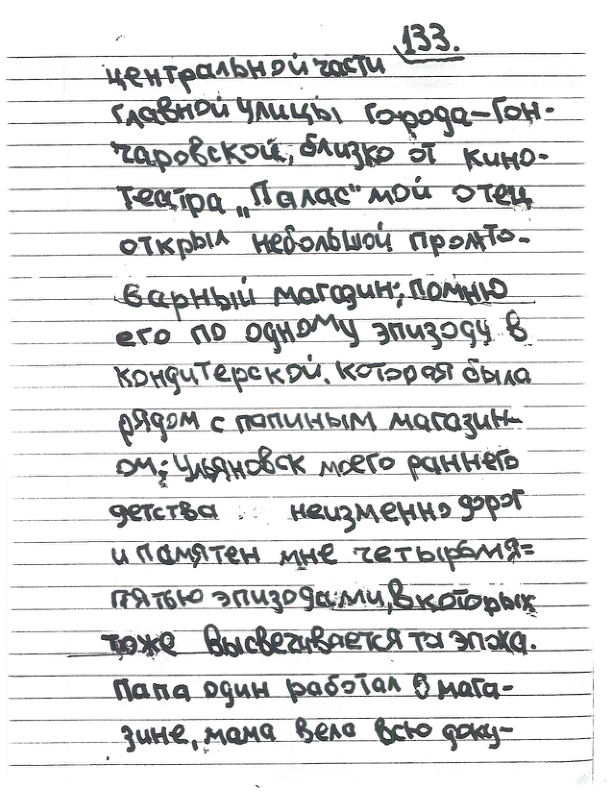 133.
центральной части
главной улицы города-Гон-
чаровской, близко от кино-
театра „Палас" мой отец
открыл небольшой промто-
варный магазин; помню
его по одному эпизоду в
кондитерской, которая была
рядом с папиным магазин-
ом; Ульяновск моего раннего
детства неизменно дорог
и памятен мне четырьмя=
пятью эпизодами, в которых
тоже высвечивается та эпоха.
Папа один работал в мага-
зине, мама вела всю доку-